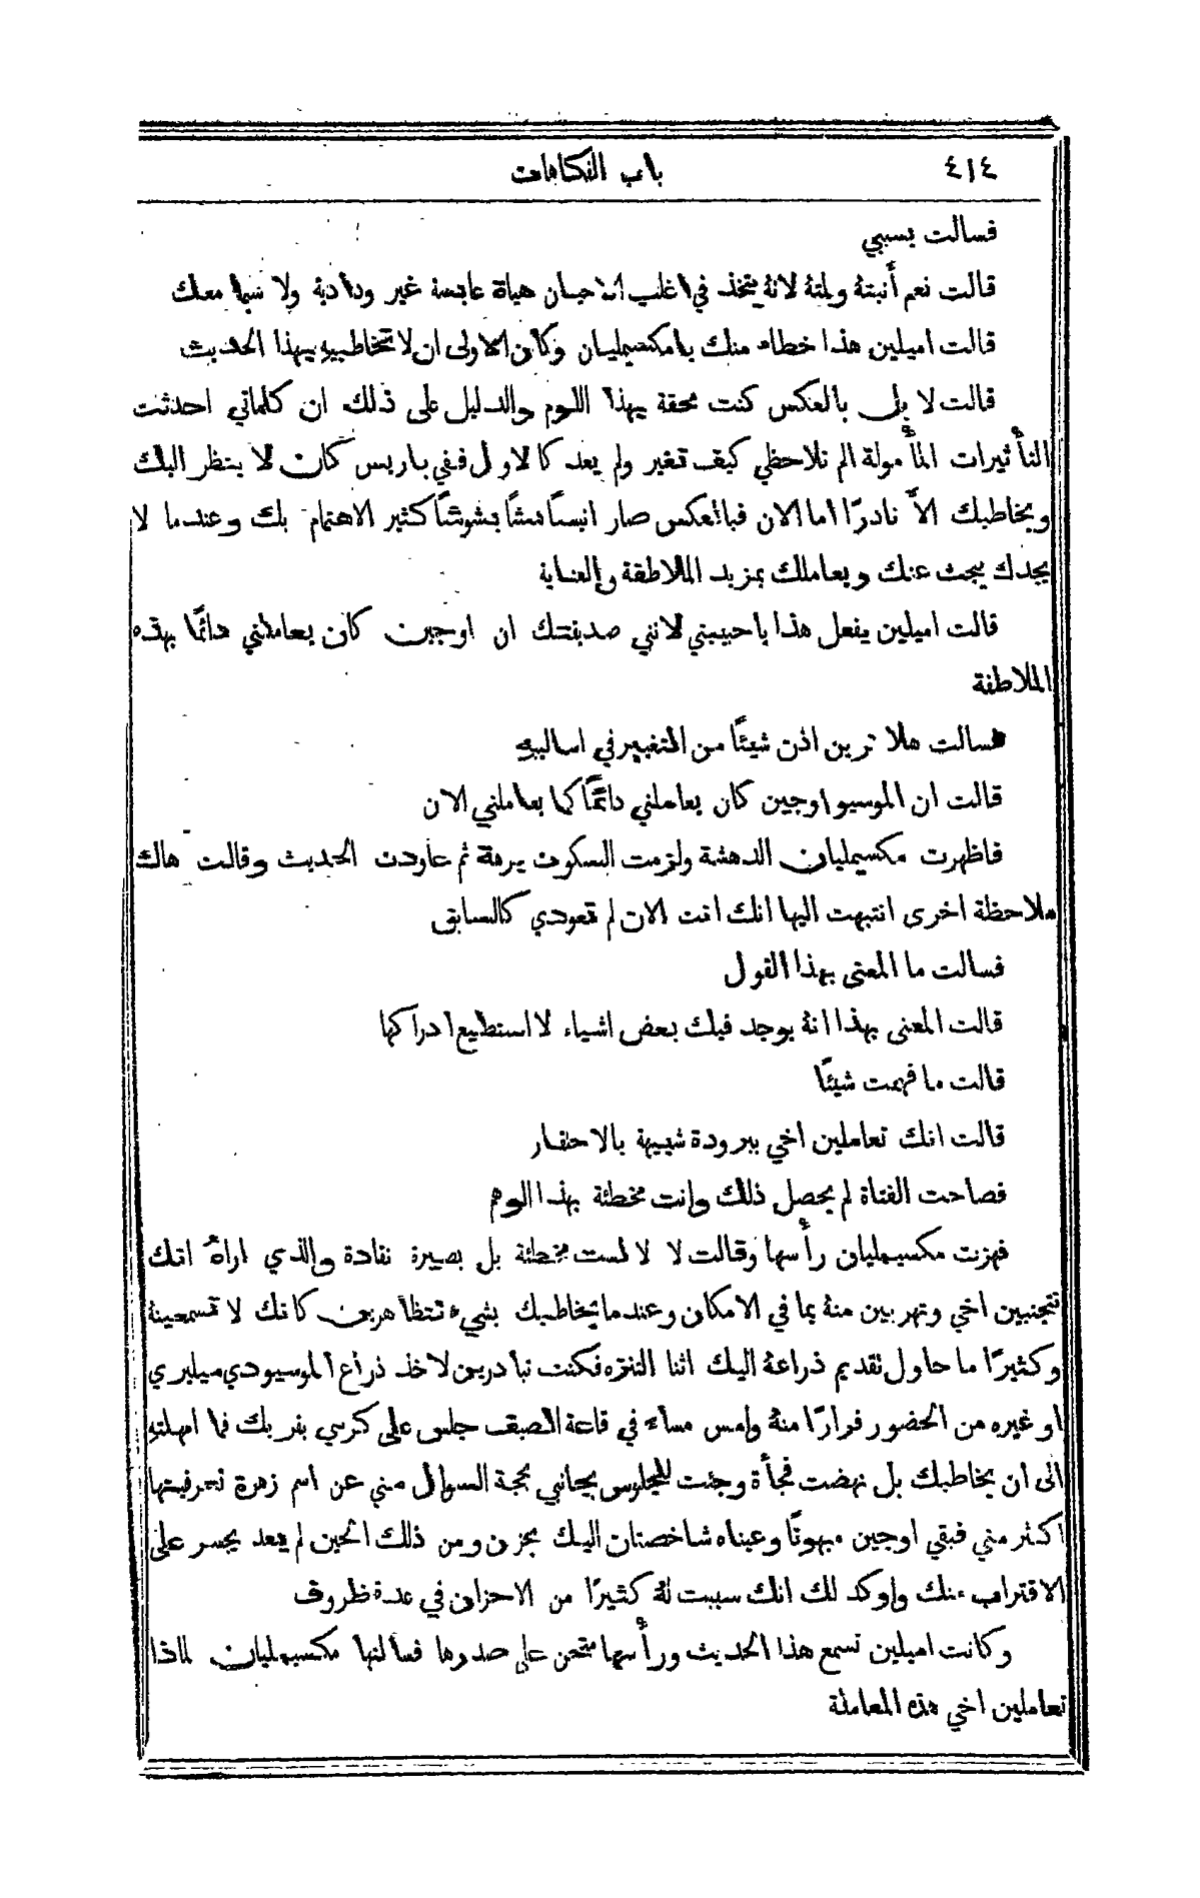 ٤١٤ باب الفكاهات
فسالت بسببي
قالت نعم أنبتهُ ولمتهُ لانهُ يتخذ في اغلب الاحيان هياة عابسة غير ودادية ولا سيما معك
قالت اميلين هذا خطاء منك يا مكسيمليان وكان الاولى ان لا تخاطبيه بهذا الحديث
قالت لا بل بالعكس كنت محقة بهذا اللوم والدليل على ذلك ان كلماتي احدثت
التأثيرات المأمولة الم تلاحظي كيف تغير ولم يعد كالاول ففي باريس كان لا ينظر اليك
ويخاطبك الاَّ نادرًا اما الان فبالعكس صار انيسًا هشًا بشوشًا كثير الاهتمام بك وعندما لا
يجدك يبحث عنك ويعاملك بمزيد الملاطفة والعناية
قالت اميلين يفعل هذا يا حبيبتي لانني صديقتك ان اوجين كان يعاملني دائمًا بهذه
الملاطفة
فسالت هلا ترين اذن شيئًا من التغيير في اساليبه
قالت ان الموسيو اوجين كان يعاملني دائمًا كما يعاملني الان
فاظهرت مكسيمليان الدهشة ولزمت السكوت برهة ثم عاودت الحديث وقالت هاك
ملاحظة اخرى انتبهت اليها انك انت الان لم تعودي كالسابق
فسالت ما المعنى بهذا القول
قالت المعنى بهذا انهُ يوجد فيك بعض اشياء لا استطيع ادراكها
قالت ما فهمت شيئًا
قالت انك تعاملين اخي ببرودة شبيهة بالاحتقار
فصاحت الفتاة لم يحصل ذلك وانت مخطئة بهذا الوهم
فهزت مكسيمليان رأسها وقالت لا لا لست مخطئة بل بصيرة نقادة والذي اراهُ انك
تتجنبين اخي وتهربين منهُ بما في الامكان وعندما يخاطبك بشيء تتظاهرين كانك لا تسمعينهُ
وكثيرًا ما حاول تقديم ذراعهُ اليك اثنا التنزه فكنت تبادرين لاخذ ذراع الموسيو دي ميلبري
او غيره من الحضور فرارًا منهُ وامس مساء في قاعة الصيف جلس على كرسي بقربك فما امهلته
الى ان يخاطبك بل نهضت فجأة وجئت للجلوس بجانبي بحجة السوال مني عن اسم زهرة تعرفينها
اكثر مني فبقي اوجين مبهوتًا وعيناه شاخصتان اليك بحزن ومن ذلك الحين لم يعد يجسر على
الاقتراب منك واوكد لك انك سببت لهُ كثيرًا من الاحزان في عدة ظروف
وكانت اميلين تسمع هذا الحديث ورأسها منحن على صدرها فسالتها مكسيمليان لماذا
تعاملين اخي هذه المعاملة